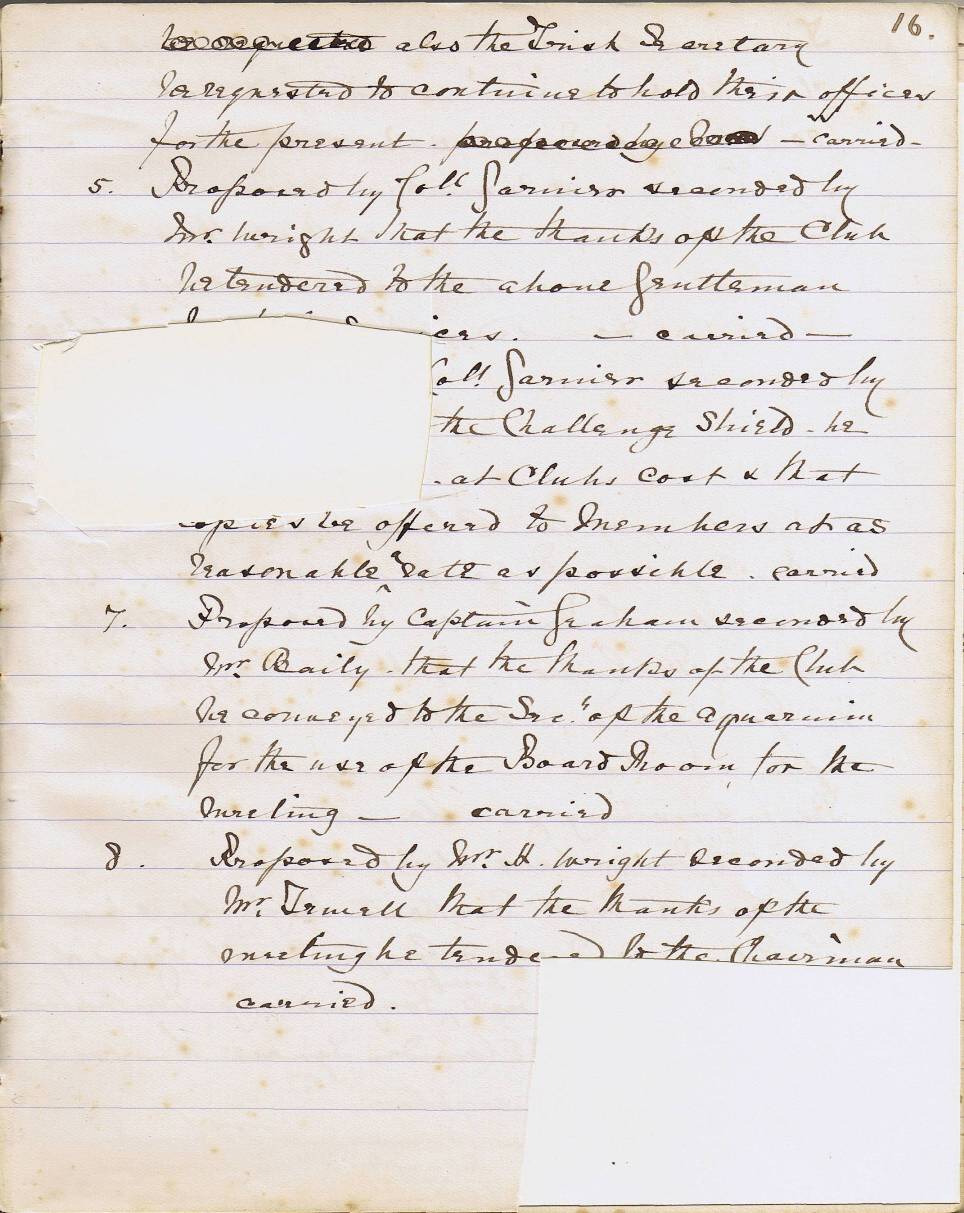 16.
also the Irish Secretary
be requested to continue to hold their offices
for the present. — carried —
5. Proposed by Coll. Garnier seconded by
Mr. Wright that the thanks of the Club
be tendered to the above Gentleman
ices. — carried —
Coll. Garnier seconded by
the Challenge Shield be
at Clubs cost & that
opies be offered to Members at as
reasonable a rate as possible. carried
7. Proposed by Captain Graham seconded by
Mr. Baily that the thanks of the Club
be conveyed to the Sec.y of the Aquarium
for the use of the Board Room for the
meeting — carried
8. Proposed by Mr. H. Wright seconded by
Mr. that the thanks of the
meeting be tendered to the Chairman
carried.